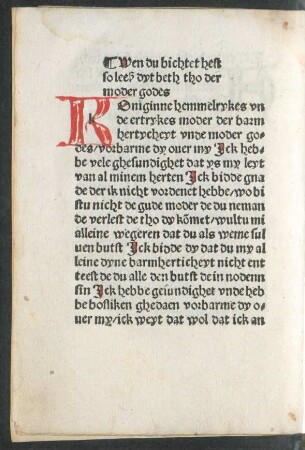 ¶ Wen du bichtet hest
so lees dyt beth tho der
moder godes
KOniginne hemmelrykes vn
de ertrykes moder der barm
hertycheyt vnde moder go-
des/vorbarme dy ouer my Jck heb-
be vele ghesundighet dat ys my leyt
van al minem herten Jck bidde gna
de der ik nicht vordenet hebbe/wo bi
stu nicht de gude moder de du neman
de verlest de tho dy kōmet/wultu mi
alleine wegeren dat du als weme sul
uen butst Jck bidde dy dat du my al
leine dyne barmherticheyt nicht ent
teest de du alle den butst de in nodenn
sin Jck hebbe gesundighet vnde heb
be bosliken ghedaen vorbarme dy o-
uer my/ick weyt dat wol dat ick an